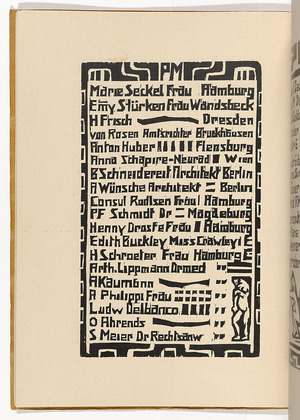 PM
Marie Seckel Frau Hamburg
Emy Stürken Frau Wandsbeck
H Frisch Dresden
von Rosen Amtsrichter Bruchhausen
Anton Huber Flensburg
Anna Schapire-Neurad Wien
B Schneidereit Architekt Berlin
A Wünsche Architekt Berlin
Consul Rudlsen Frau Hamburg
PF Schmidt Dr Magdeburg
Henny Droste Frau Hamburg
Edith Buckley Miss Crawley
H Schroeter Frau Hamburg
Arth. Lippmann Dr med "
A Kaumann "
A Philippi Frau "
Ludw Delbanco "
O Ahrends "
S Meier Dr Rechtsanw "